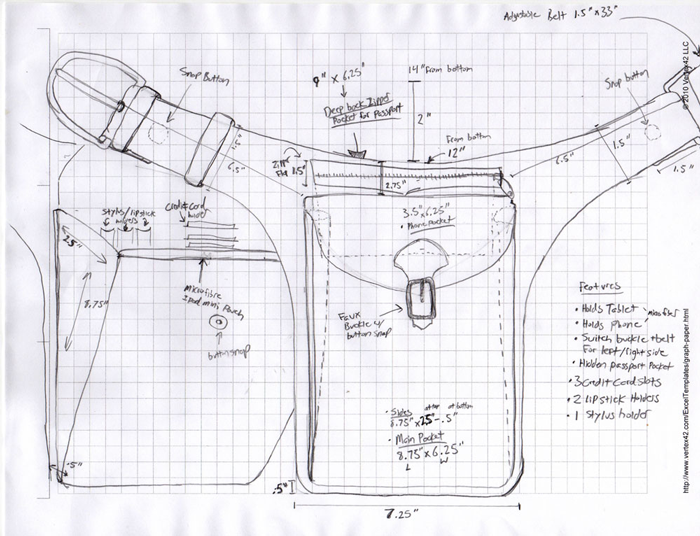 Adjustable Belt 1.5" x 33"
Snap Button
9" x 6.25"
Deep back Zipper
Pocket for Passport
14" From bottom
2"
From bottom
12"
Snap button
6.5"
Zipper
Flap 1.5"
2.75"
6.5"
1.5"
1.5"
Stylus/lipstick
holders
Credit Card
holder
3.5" x 6.25"
• Phone pocket
.25"
8.75"
Microfibre
ipad mini Pouch
button snap
Faux
Buckle w/
button snap
Features
• Holds Tablet
• Holds phone
microfiber
• Switch buckle + belt
For left/right side
• Hidden passport Pocket
• 3 credit card slots
• 2 lipstick Holders
• 1 stylus holder
• Sides at top at bottom
8.75" x .25" - .5"
• Main Pocket
8.75" x 6.25"
L W
.5"
.5"
7.25"
© 2010 Vertex42 LLC
http://www.vertex42.com/ExcelTemplates/graph-paper.html